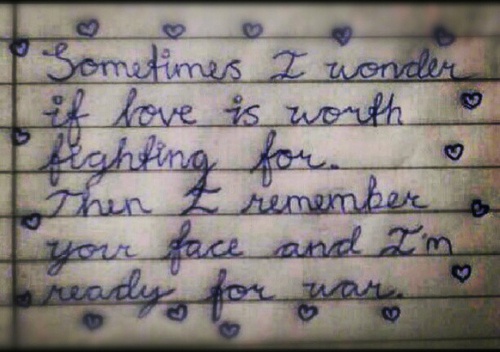 Sometimes I wonder
if love is worth
fighting for.
Then I remember
your face and I'm
ready for war.